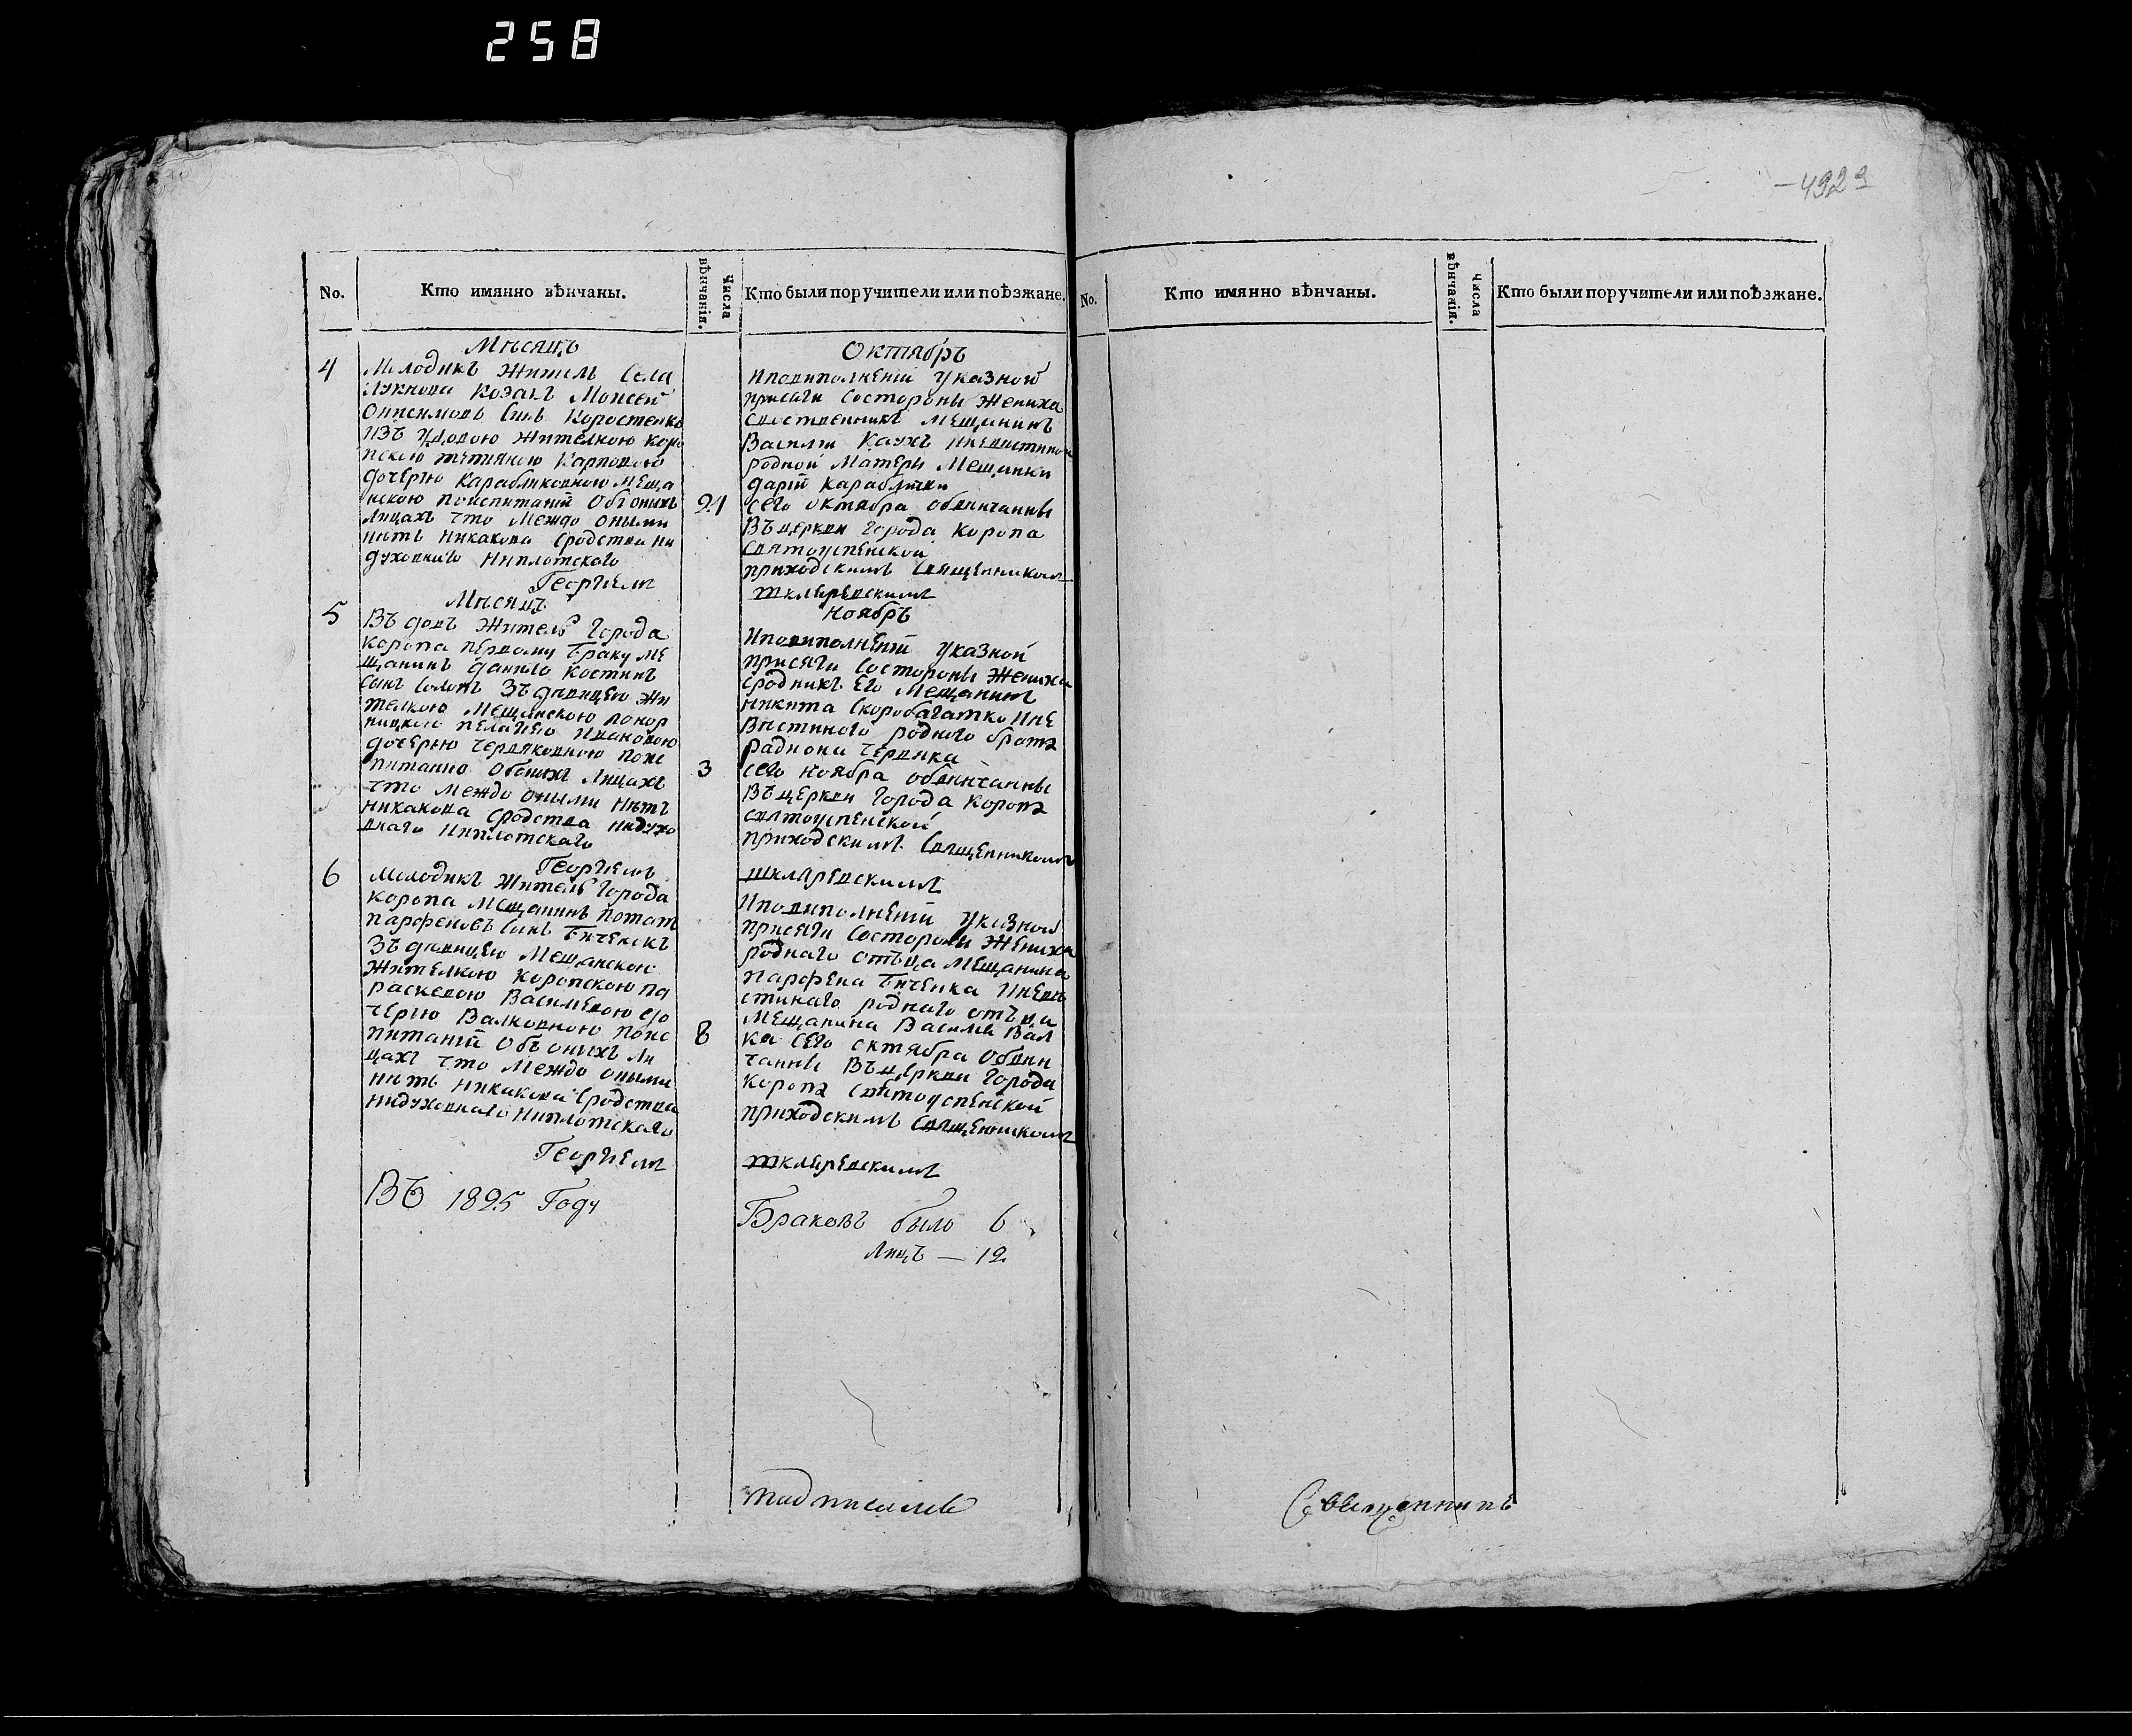 258
-4929
No.
Кто имянно вѣнчаны.
Числа вѣнчанія.
Кто были поручители или поѣзжане.
Мѣсяцъ
4
Молодикъ Житель Села
Козакъ Моисей
Онисимовъ Синъ Коростенко
изъ Удовою Жителкою Коро
пскою Карповою
дочерю Карабликовною Меща
нскою поиспитаний Объ онихъ
лицахъ что Междо оными
нѣтъ Никакова Сродства ни
духовнаго Ниплотскаго
Георгием
24
Октябрь
Иповиполнений Указной
присяги Состороны Жениха
Сродственникъ Мещанинъ
Василий Каухъ
родной Матери Мещинки
дарий Караблики
сего октября обвинчанны
Въ церкви Города Коропа
Святоуспенской
приходскимъ Священником
шкляревскимъ
Мѣсяцъ
5
Въ дов Житель Города
Коропа первому Браку Ме
щанинъ данило Костинъ
Синъ Зъ дѣвицею Жи
телкою Мещанскою Покор
Пелагею Ивановою
дочерью Червяковною поис
питанию Обонихъ Лицахъ
что Междо оными Нѣтъ
Никакова Сродства Нидухо
внаго Ниплотскаго
Георгием
3
Ноябрь
Иповиполнений Указной
присяги Состороны Жениха
Сродникъ Его Мещанинъ
Никита Скоробагатко Ине
вѣстиного родного брата
Радиона Червяка
сего ноября обвинчанны
Въ церкви Города Коропа
святоуспенской
приходскимъ Священником
шкляревскимъ
6
Молодикъ Житель Города
Коропа Мещанинъ Потап
Парфеновъ Синъ Биченскъ
Зъ давицею Мещанскою
Жителкою Коропскою Па
раскевою Василевою до
черю Валковною поис
питаний Объ онихъ Ли
цахъ что Междо оными
нѣтъ Никакова Сродства
Нидуховнаго Ниплотскаго
Георгием
8
Иповиполнений Указной
присяги Состороны Жениха
родного отъца Мещанина
Парфена Биченка Иневѣ
стинаго родного отъца
Мещанина Василя Вал
ка сего октября Обвин
чанны Въ церкви Города
Коропа Святоуспенской
приходскимъ Священником
шкляревскимъ
Въ 1825 Году
Браковъ было 6
Лицъ — 12
подписалъ
No.
Кто имянно вѣнчаны.
Числа вѣнчанія.
Кто были поручители или поѣзжане.
Священникъ